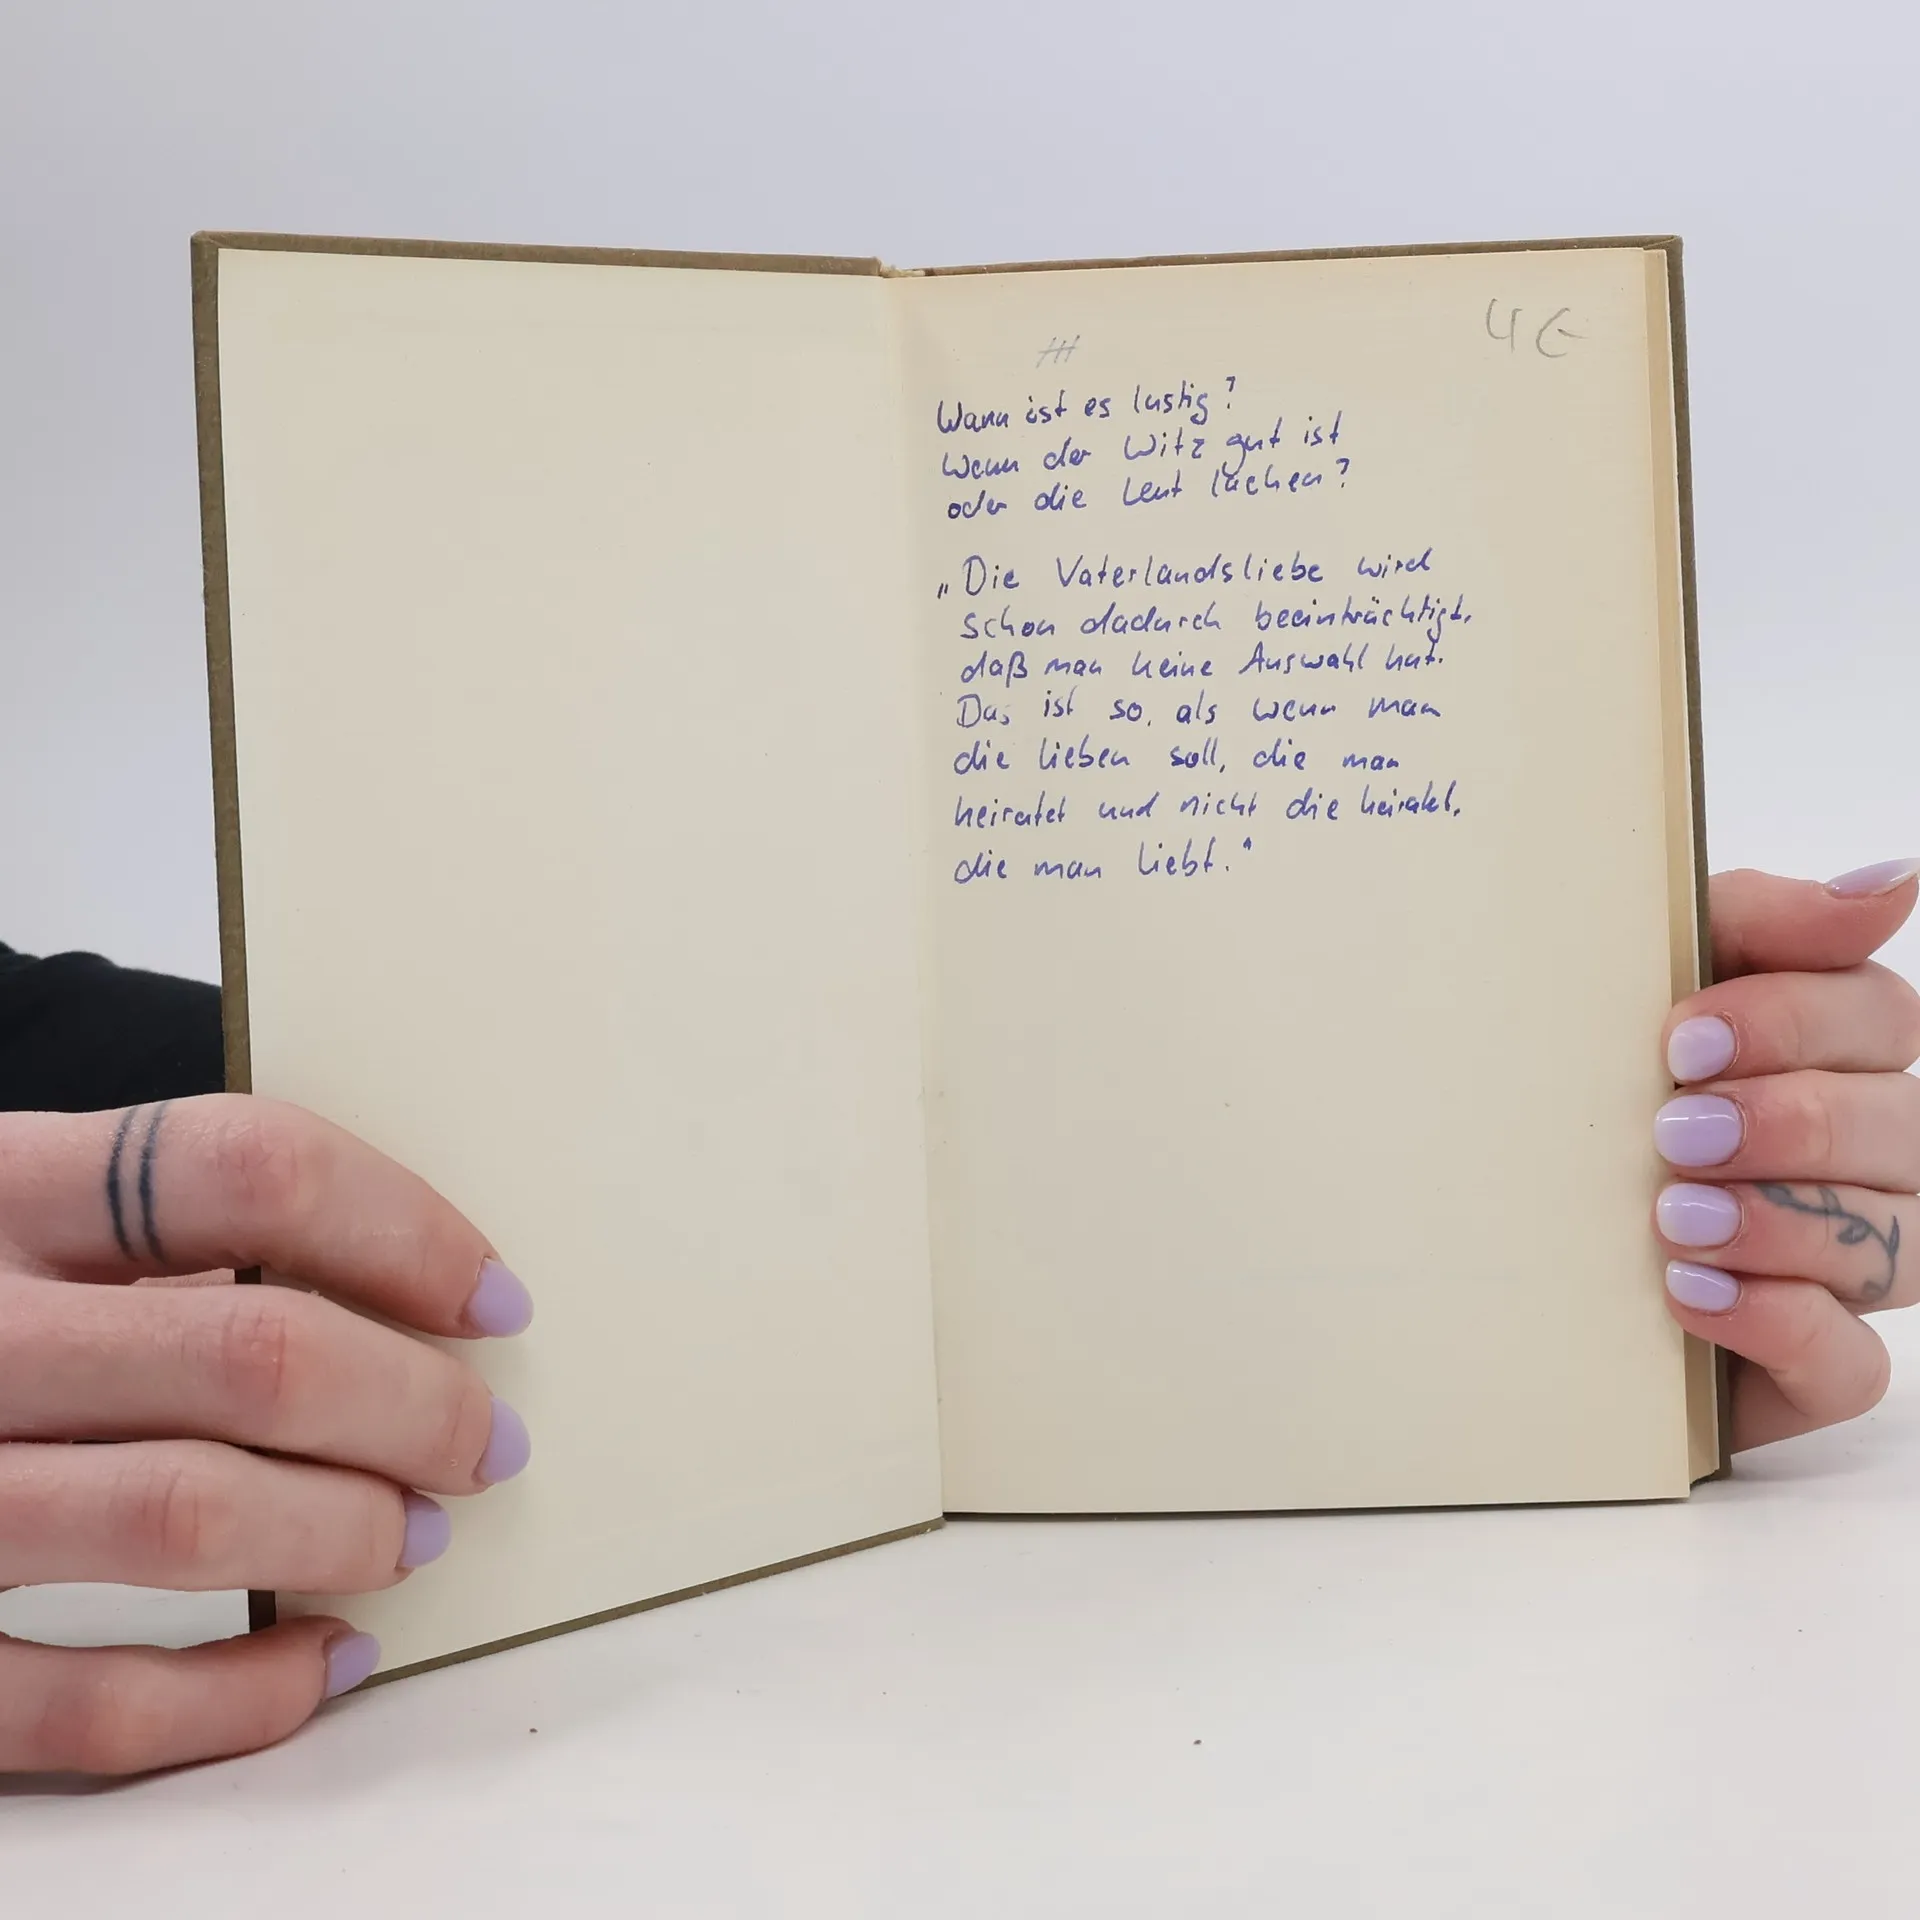 4 €
Wann ist es lustig?
Wenn der Witz gut ist
oder die Leut lachen?
„Die Vaterlandsliebe wird
schon dadurch beeinträchtigt,
daß man keine Auswahl hat.
Das ist so, als wenn man
die lieben soll, die man
heiratet und nicht die heiratet,
die man liebt."